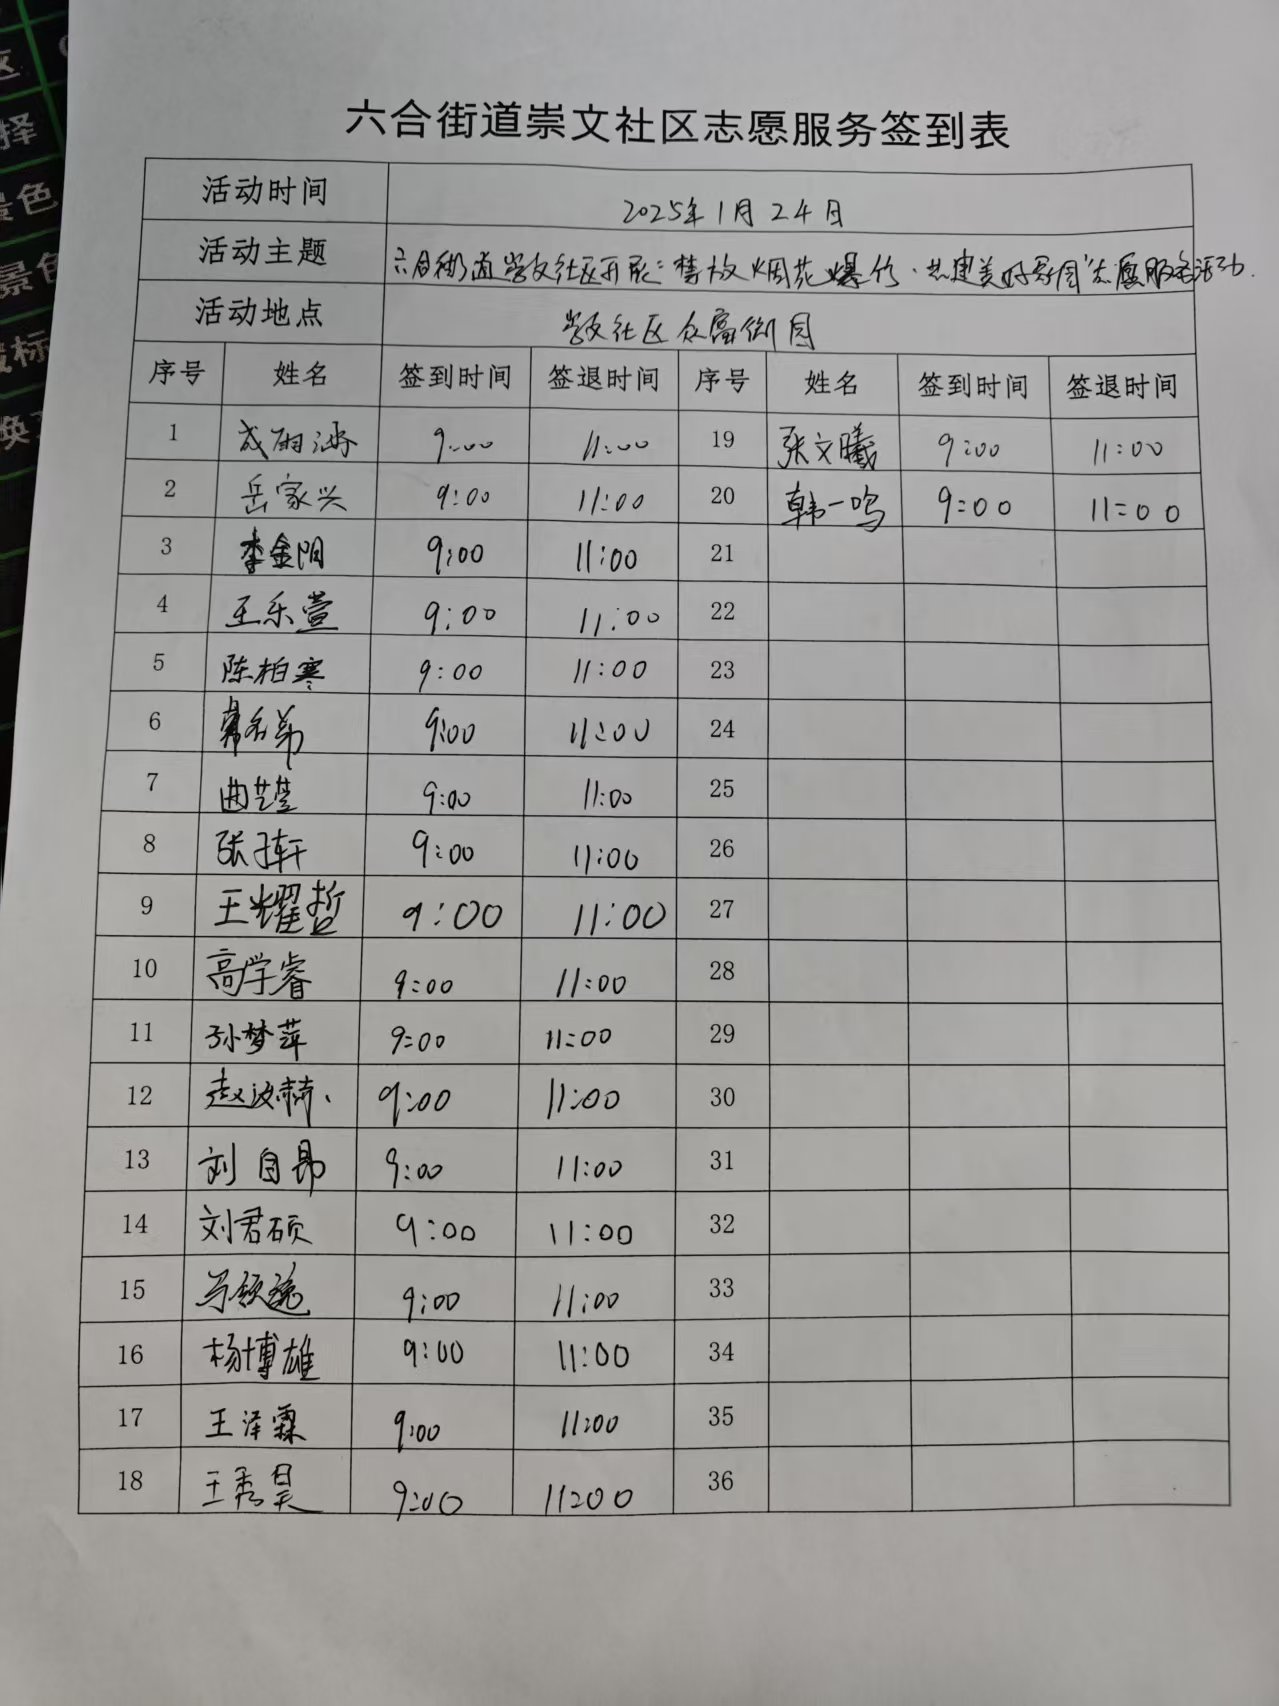 区
择
景色
景色
六合街道崇文社区志愿服务签到表
活动时间 2025年1月24日
活动主题 六合街道崇文社区开展"禁放烟花爆竹·共建美好家园"志愿服务活动.
活动地点 崇文社区众富御园
序号 姓名 签到时间 签退时间 序号 姓名 签到时间 签退时间
1 成雨涵 9:00 11:00 19 张文曦 9:00 11:00
2 岳家兴 9:00 11:00 20 韩一鸣 9:00 11:00
3 李金阳 9:00 11:00 21
4 王乐萱 9:00 11:00 22
5 陈柏寒 9:00 11:00 23
6 9:00 11:00 24
7 曲艺莹 9:00 11:00 25
8 张子轩 9:00 11:00 26
9 王耀哲 9:00 11:00 27
10 高学睿 9:00 11:00 28
11 孙梦萍 9:00 11:00 29
12 9:00 11:00 30
13 刘自昂 9:00 11:00 31
14 刘君硕 9:00 11:00 32
15 9:00 11:00 33
16 杨博雄 9:00 11:00 34
17 王泽霖 9:00 11:00 35
18 王秀昊 9:00 11:00 36